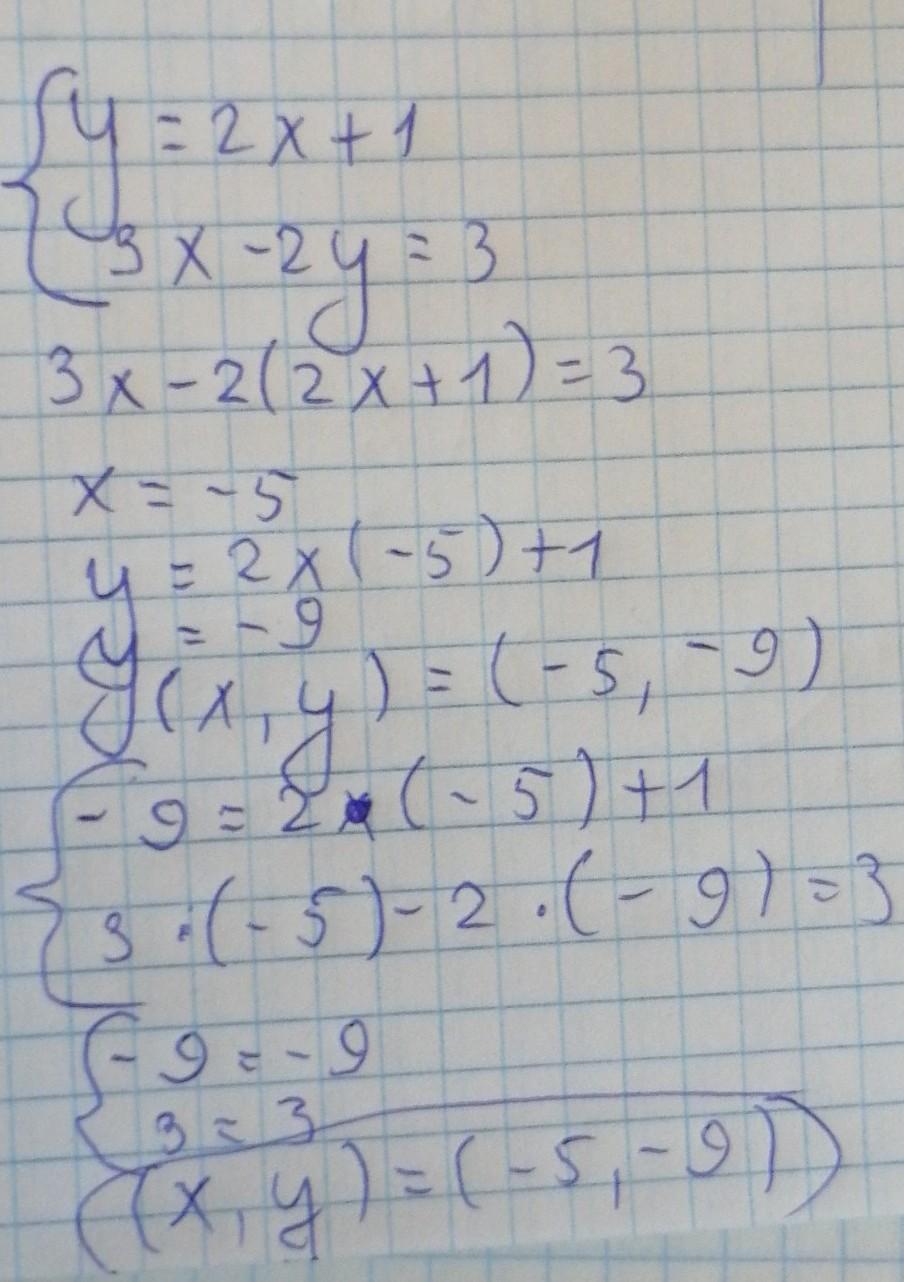 {y = 2x + 1
3x - 2y = 3
3x - 2(2x + 1) = 3
x = -5
y = 2x(-5) + 1
y = -9
(x, y) = (-5, -9)
{-9 = 2·(-5) + 1
3·(-5) - 2·(-9) = 3
{-9 = -9
3 = 3
(x, y) = (-5, -9)